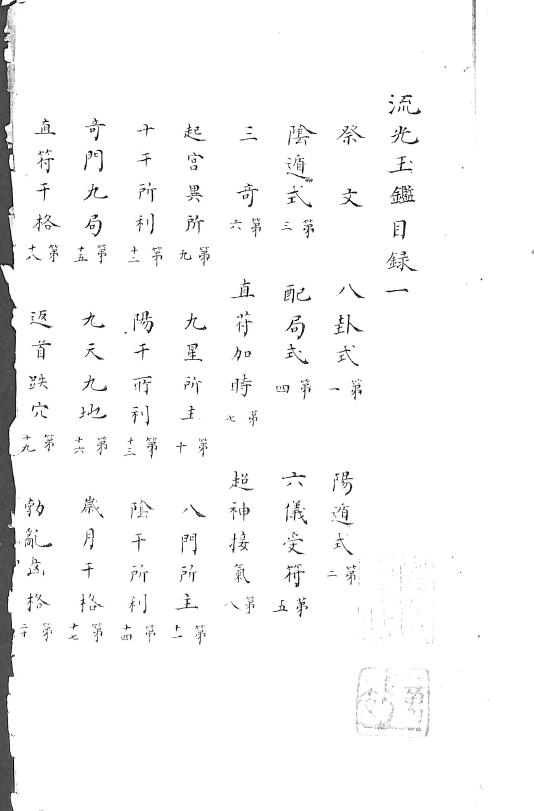 流光玉鑑目録一
祭文　八卦式第一　陽遁式第二
陰遁式第三　配局式第四　六儀受符第五
三奇第六　直符加時第七　超神接氣第八
起宮異所第九　九星所主第十　八門所主第十一
十干所利第十二　陽干所利第十三　陰干所利第十四
奇門九局第十五　九天九地第十六　歳月干格第十七
直符干格第十八　返首跌穴第十九　勃亂凶格第二十